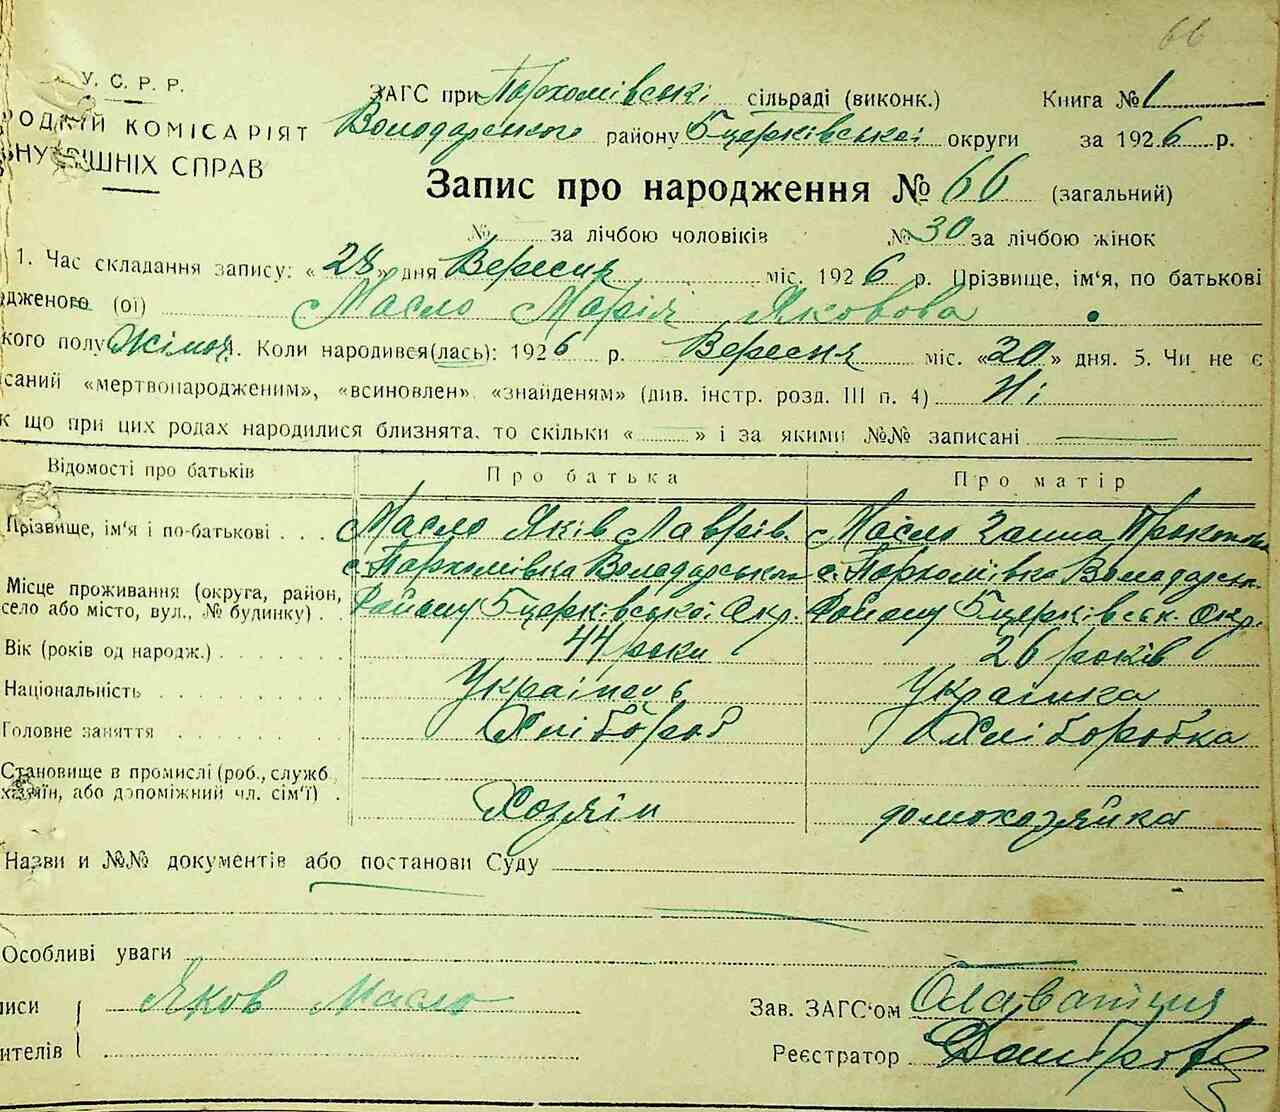 66
У. С. Р. Р.
РОДНІЙ КОМІСАРІЯТ
ВНУТРІШНІХ СПРАВ
ЗАГС при Пархомівські сільраді (виконк.) Книга № 1
Володарського району Бцерківської округи за 1926 р.
Запис про народження № 66 (загальний)
№ за лічбою чоловіків № 30 за лічбою жінок
1. Час складання запису: «28» дня Вересня міс. 1926 р. Прізвище, ім'я, по батькові
дженого (ої) Масло Марія Яковова
кого полу Жіноч. Коли народився(лась): 1926 р. Вересня міс. «20» дня. 5. Чи не є
саний «мертвонародженим», «всиновлен» «знайденям» (див. інстр. розд. III п. 4) Ні
к що при цих родах народилися близнята, то скільки « » і за якими №№ записані
Відомості про батьків Про батька Про матір
Прізвище, ім'я і по-батькові . . . Масло Яків Лаврів. Масло Ганна Прокопова
с. Пархомівка Володарськ с. Пархомівка Володарськ.
Місце проживання (округа, район,
село або місто, вул., № будинку) . . Району Бцерківської Окр. Району Бцерківськ. Окр.
Вік (років од народж.) . . . . . . 44 роки 26 років
Національність . . . . . . . . . Українець Українка
Головне заняття . . . . . . . Хлібороб Хліборобка
Становище в промислі (роб., служб
хазяїн, або допоміжний чл. сім'ї) . Хозяін домохозяйка
Назви и №№ документів або постанови Суду
Особливі уваги
иси Яков Масло Зав. ЗАГС'ом
ителів Реєстратор